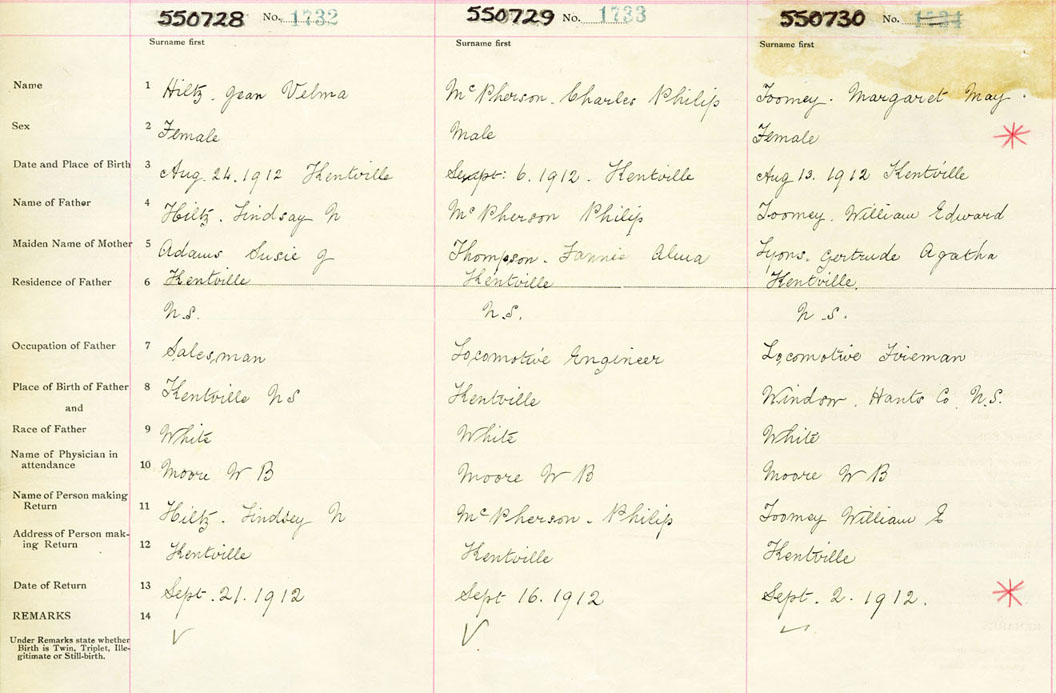 550728 No. 1732 550729 No. 1733 550730 No. 1734
Surname first Surname first Surname first
Name 1 Hiltz. Jean Velma McPherson. Charles Philip Toomey. Margaret May.
Sex 2 Female Male Female
Date and Place of Birth 3 Aug. 24. 1912 Kentville Sept: 6. 1912. Kentville Aug 13. 1912 Kentville
Name of Father 4 Hiltz. Lindsay N McPherson Philip Toomey. William Edward
Maiden Name of Mother 5 Adams Susie J Thompson. Fannie Alma Lyons. Gertrude Agatha
Residence of Father 6 Kentville Kentville Kentville.
N.S. N.S. N.S.
Occupation of Father 7 Salesman Locomotive Engineer Locomotive Fireman
Place of Birth of Father 8 Kentville NS Kentville Windsor. Hants Co. N.S.
and
Race of Father 9 White White White
Name of Physician in
attendance 10 Moore W B Moore W B Moore W B
Name of Person making
Return 11 Hiltz. Lindsey N McPherson. Philip Toomey William E
Address of Person mak-
ing Return 12 Kentville Kentville Kentville
Date of Return 13 Sept. 21. 1912 Sept 16. 1912 Sept. 2. 1912.
REMARKS 14
Under Remarks state whether
Birth is Twin, Triplet, Ille-
gitimate or Still-birth.